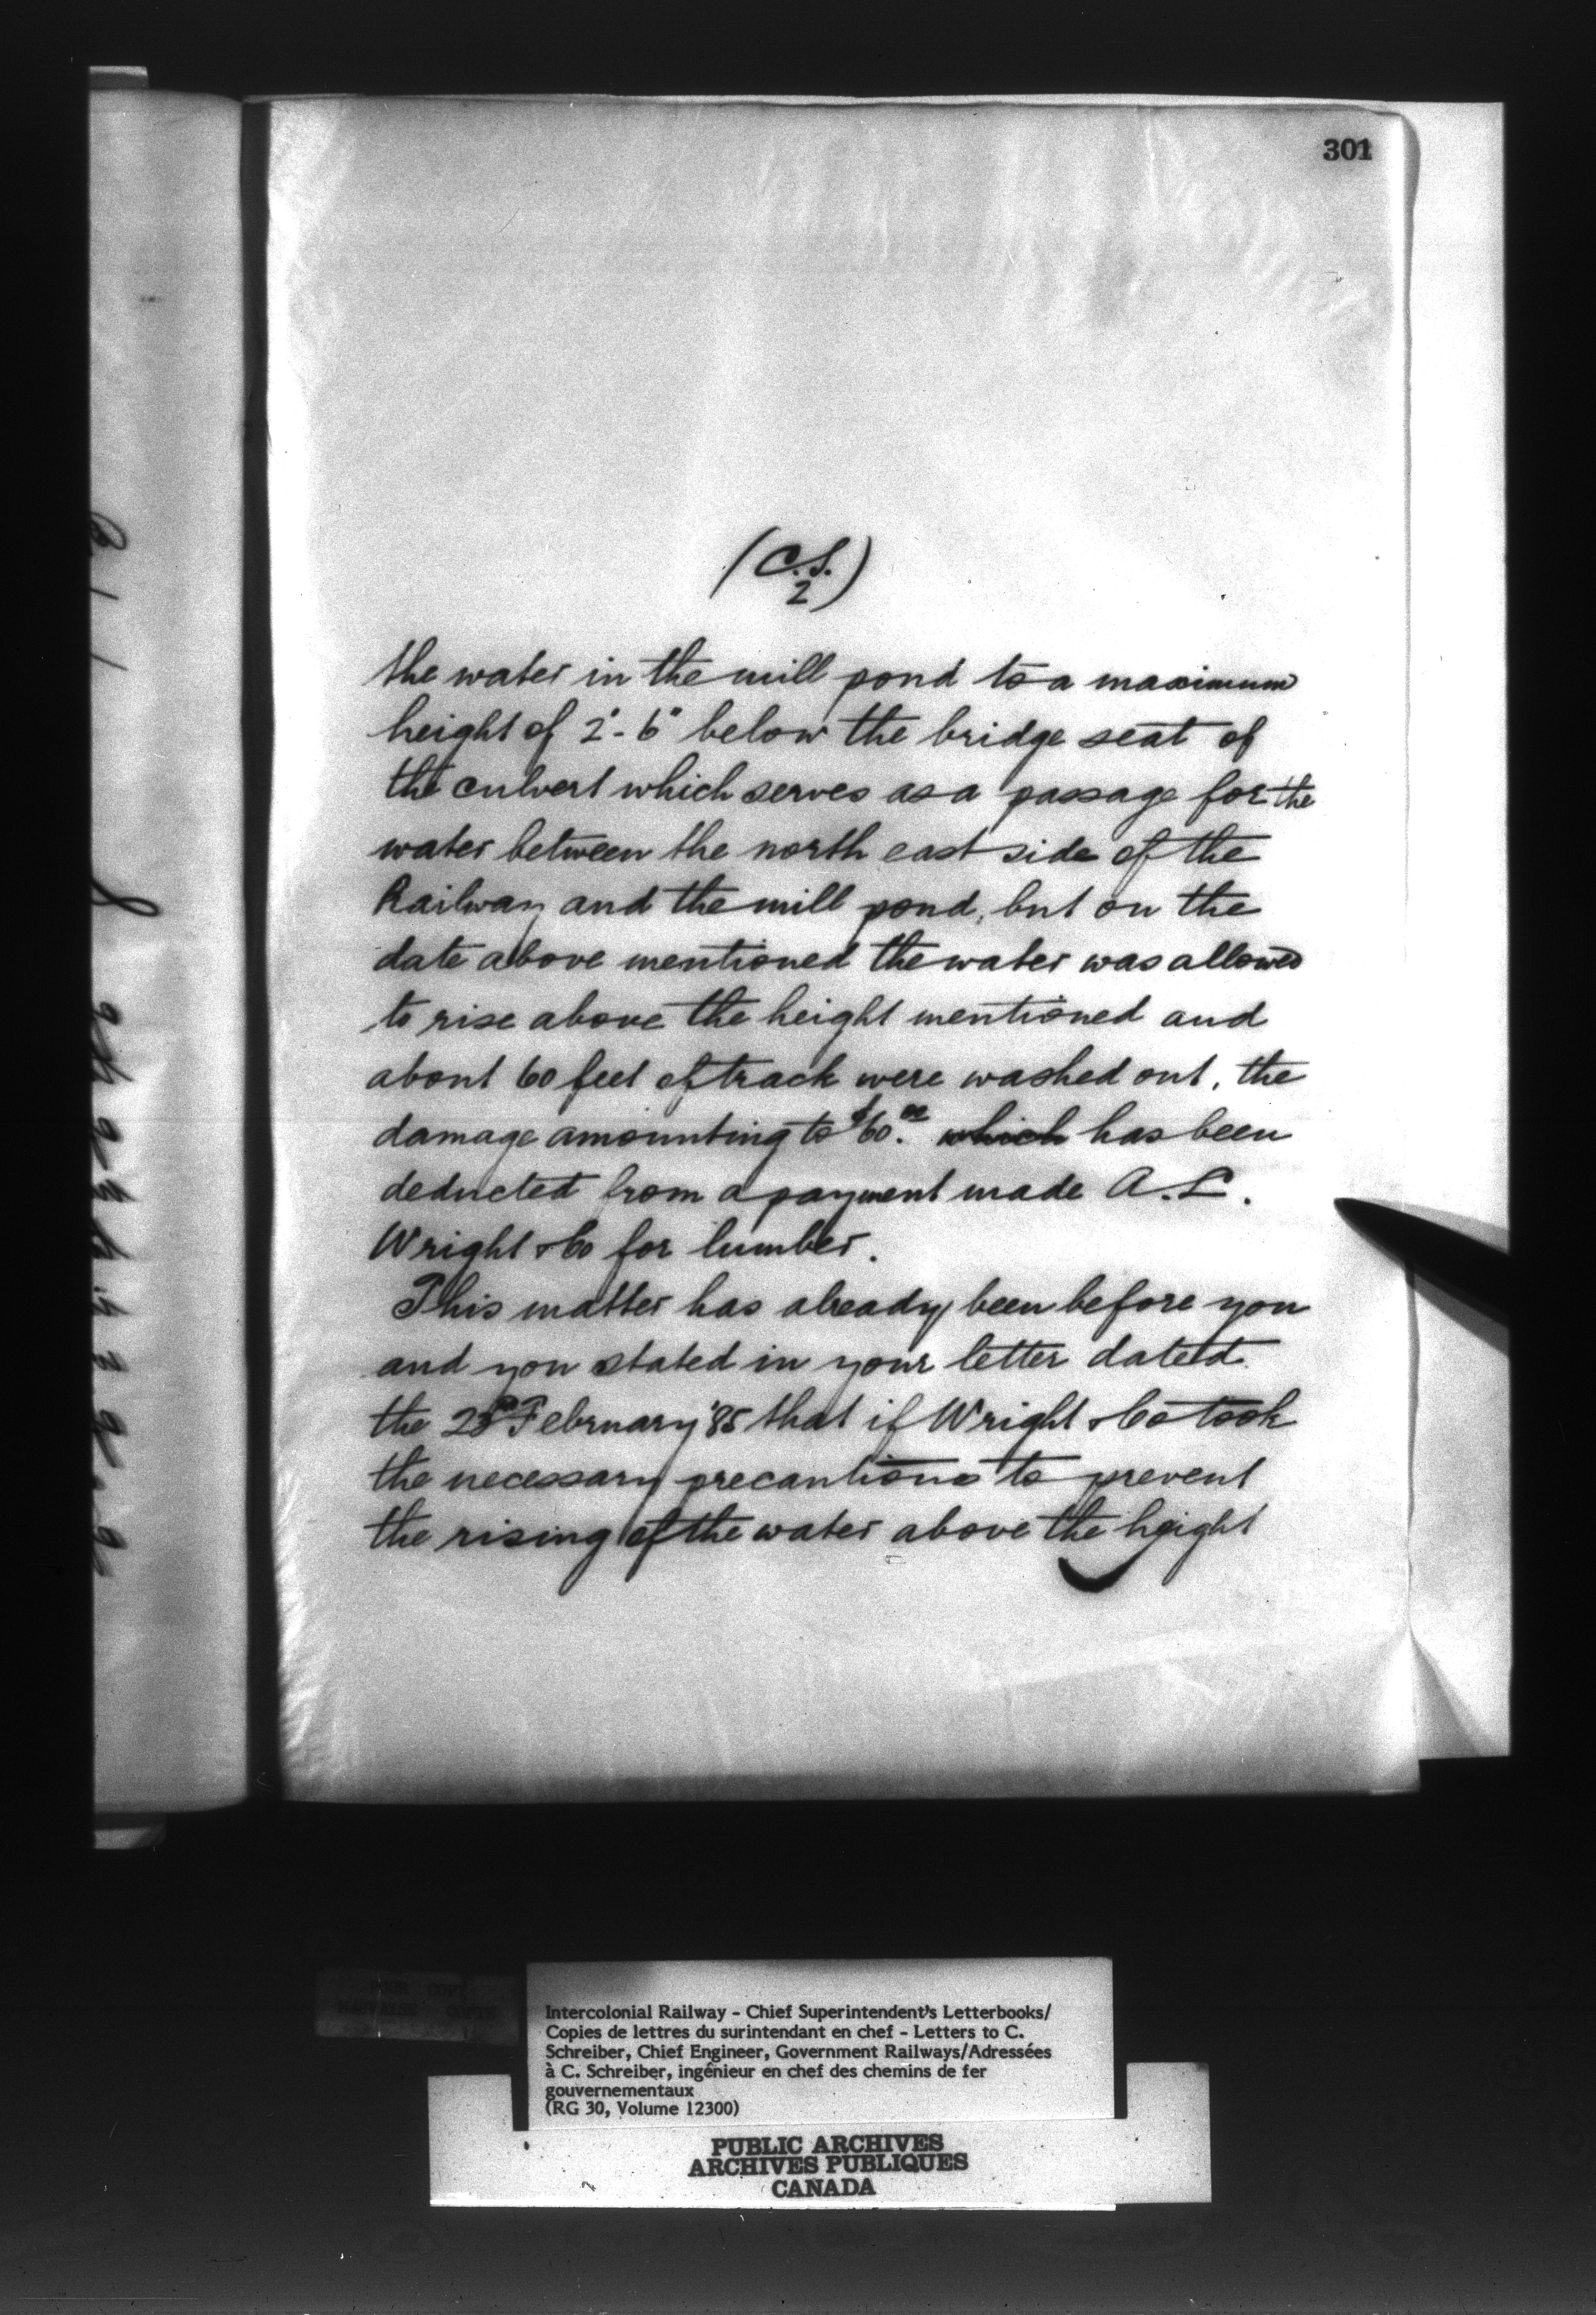 301
(C.S.
2)
the water in the mill pond to a maximum
height of 2'-6" below the bridge seat of
the culvert which serves as a passage for the
water between the north east side of the
Railway and the mill pond, but on the
date above mentioned the water was allowed
to rise above the height mentioned and
about 60 feet of track were washed out, the
damage amounting to $60.00 which has been
deducted from a payment made A.L.
Wright & Co for lumber.
This matter has already been before you
and you stated in your letter dated
the February '85 that if Wright & Co took
the necessary precautions to prevent
the rising of the water above the height
Intercolonial Railway - Chief Superintendent's Letterbooks/
Copies de lettres du surintendant en chef - Letters to C.
Schreiber, Chief Engineer, Government Railways/Adressées
à C. Schreiber, ingénieur en chef des chemins de fer
gouvernementaux
(RG 30, Volume 12300)
PUBLIC ARCHIVES
ARCHIVES PUBLIQUES
CANADA